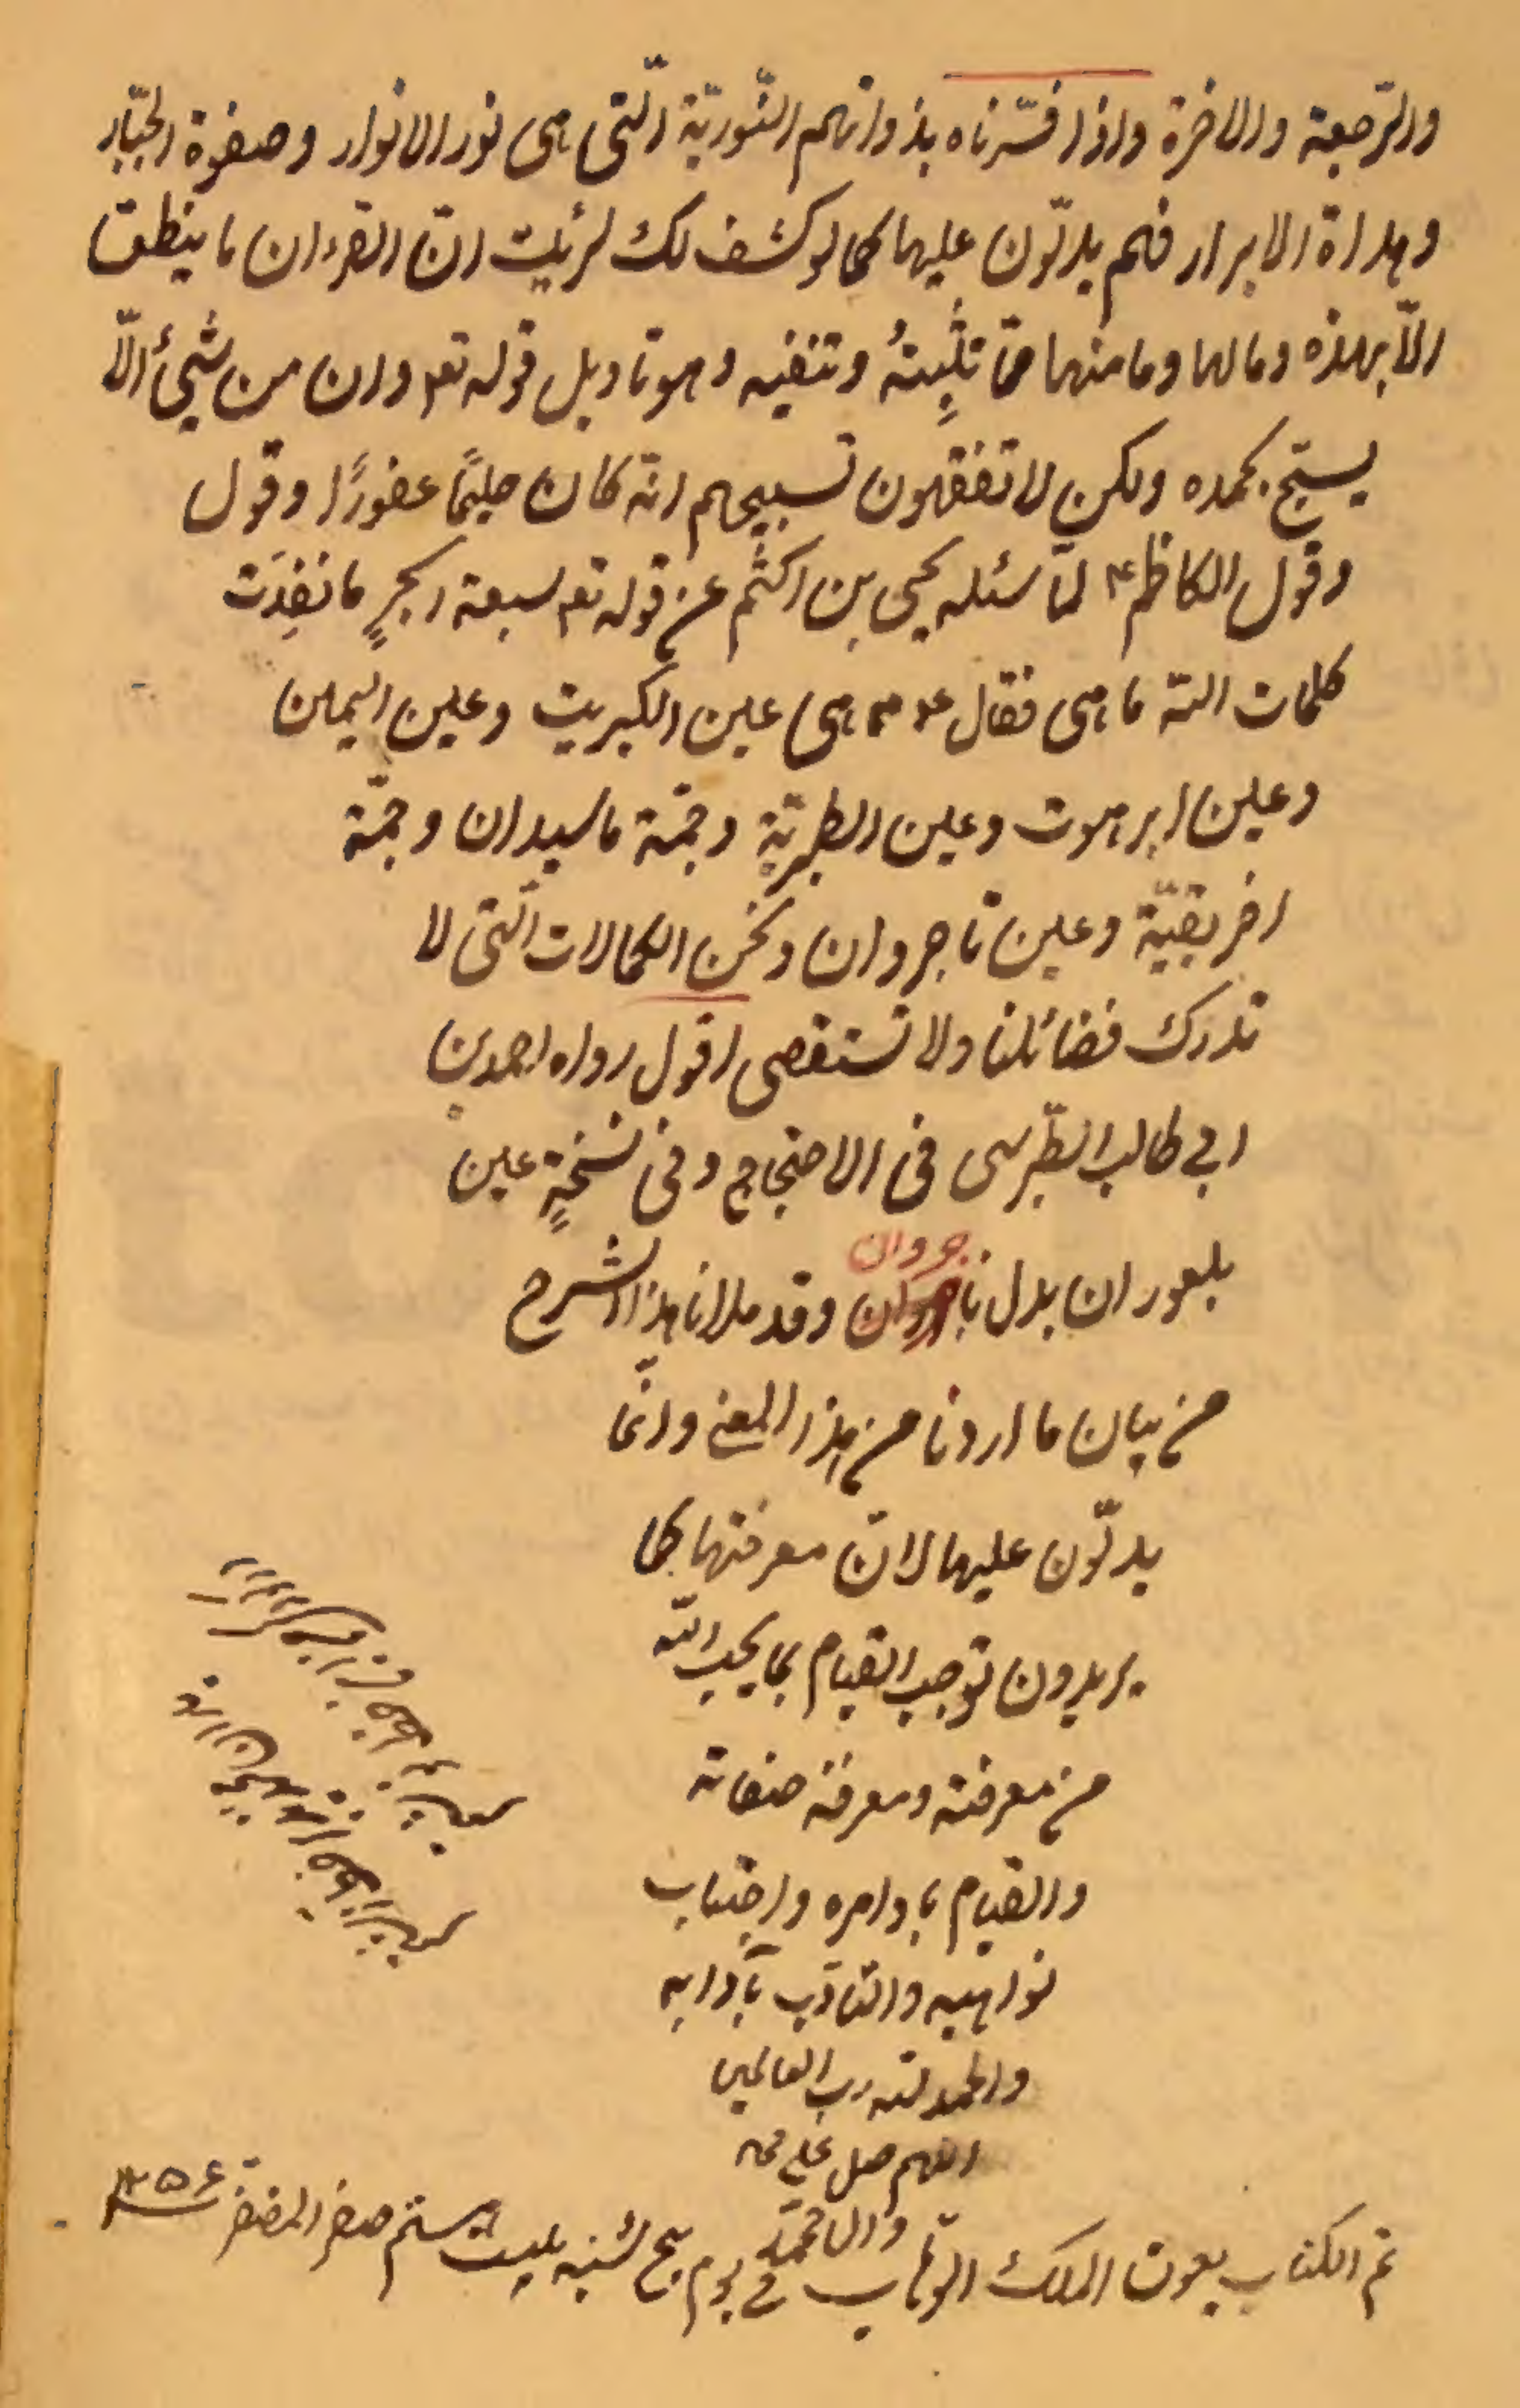 والرّجعة والاخرة واذا فسّرناه بذواتهم النّوريّة الّتي هي نور الانوار وصفوة الجبّار
وهداة الابرار فهم يدلّون عليها كما لو كشف لك لرئيت انّ القرءان ما ينطق
الّا بهذه ومالها وما منها ممّا تثبِتهُ وتنفيه وهو تاويل قوله تعم وان من شيئ الّا
يسبّح بحمده ولكن لا تفقهون تسبيحهم انّه كان حليمًا غفورًا وقول
وقول الكاظم ع لمّا سئله يحيى بن اكثم عن قوله تعم سبعة ابحرٍ ما نفِدَت
كلمات اللّه ما هي فقال ع هي عين الكبريت وعين اليمين
وعين ابرهوت وعين الطبريّة وجمّة ماسيدان وجمّة
افريقيّة وعين ناجروان ونحن الكمالات الّتي لا
تدرك فضائلنا ولا تستقصى اقول رواه احمد بن
ابي طالب الطّبرسي في الاحتجاج وفي نسخةٍ عين
بلعوران بدل ناجروان وقد ملانا هذا الشرح
جروان
من بيان ما اردنا من هذا المعنى وانّما
يدلّون عليها لانّ معرفتها كما
يريدون توجب القيام بما يحب اللّه
من معرفته ومعرفة صفاته
والقيام باوامره واجتناب
نواهيه والتادّب بآدابه
والحمد للّه رب العالمين
اللهم صل على محمد
وال محمّد
تم الكتاب بعون الملك الوهّاب في يوم پنج شنبه بيست ششم صفر المظفر ١٢٥۶